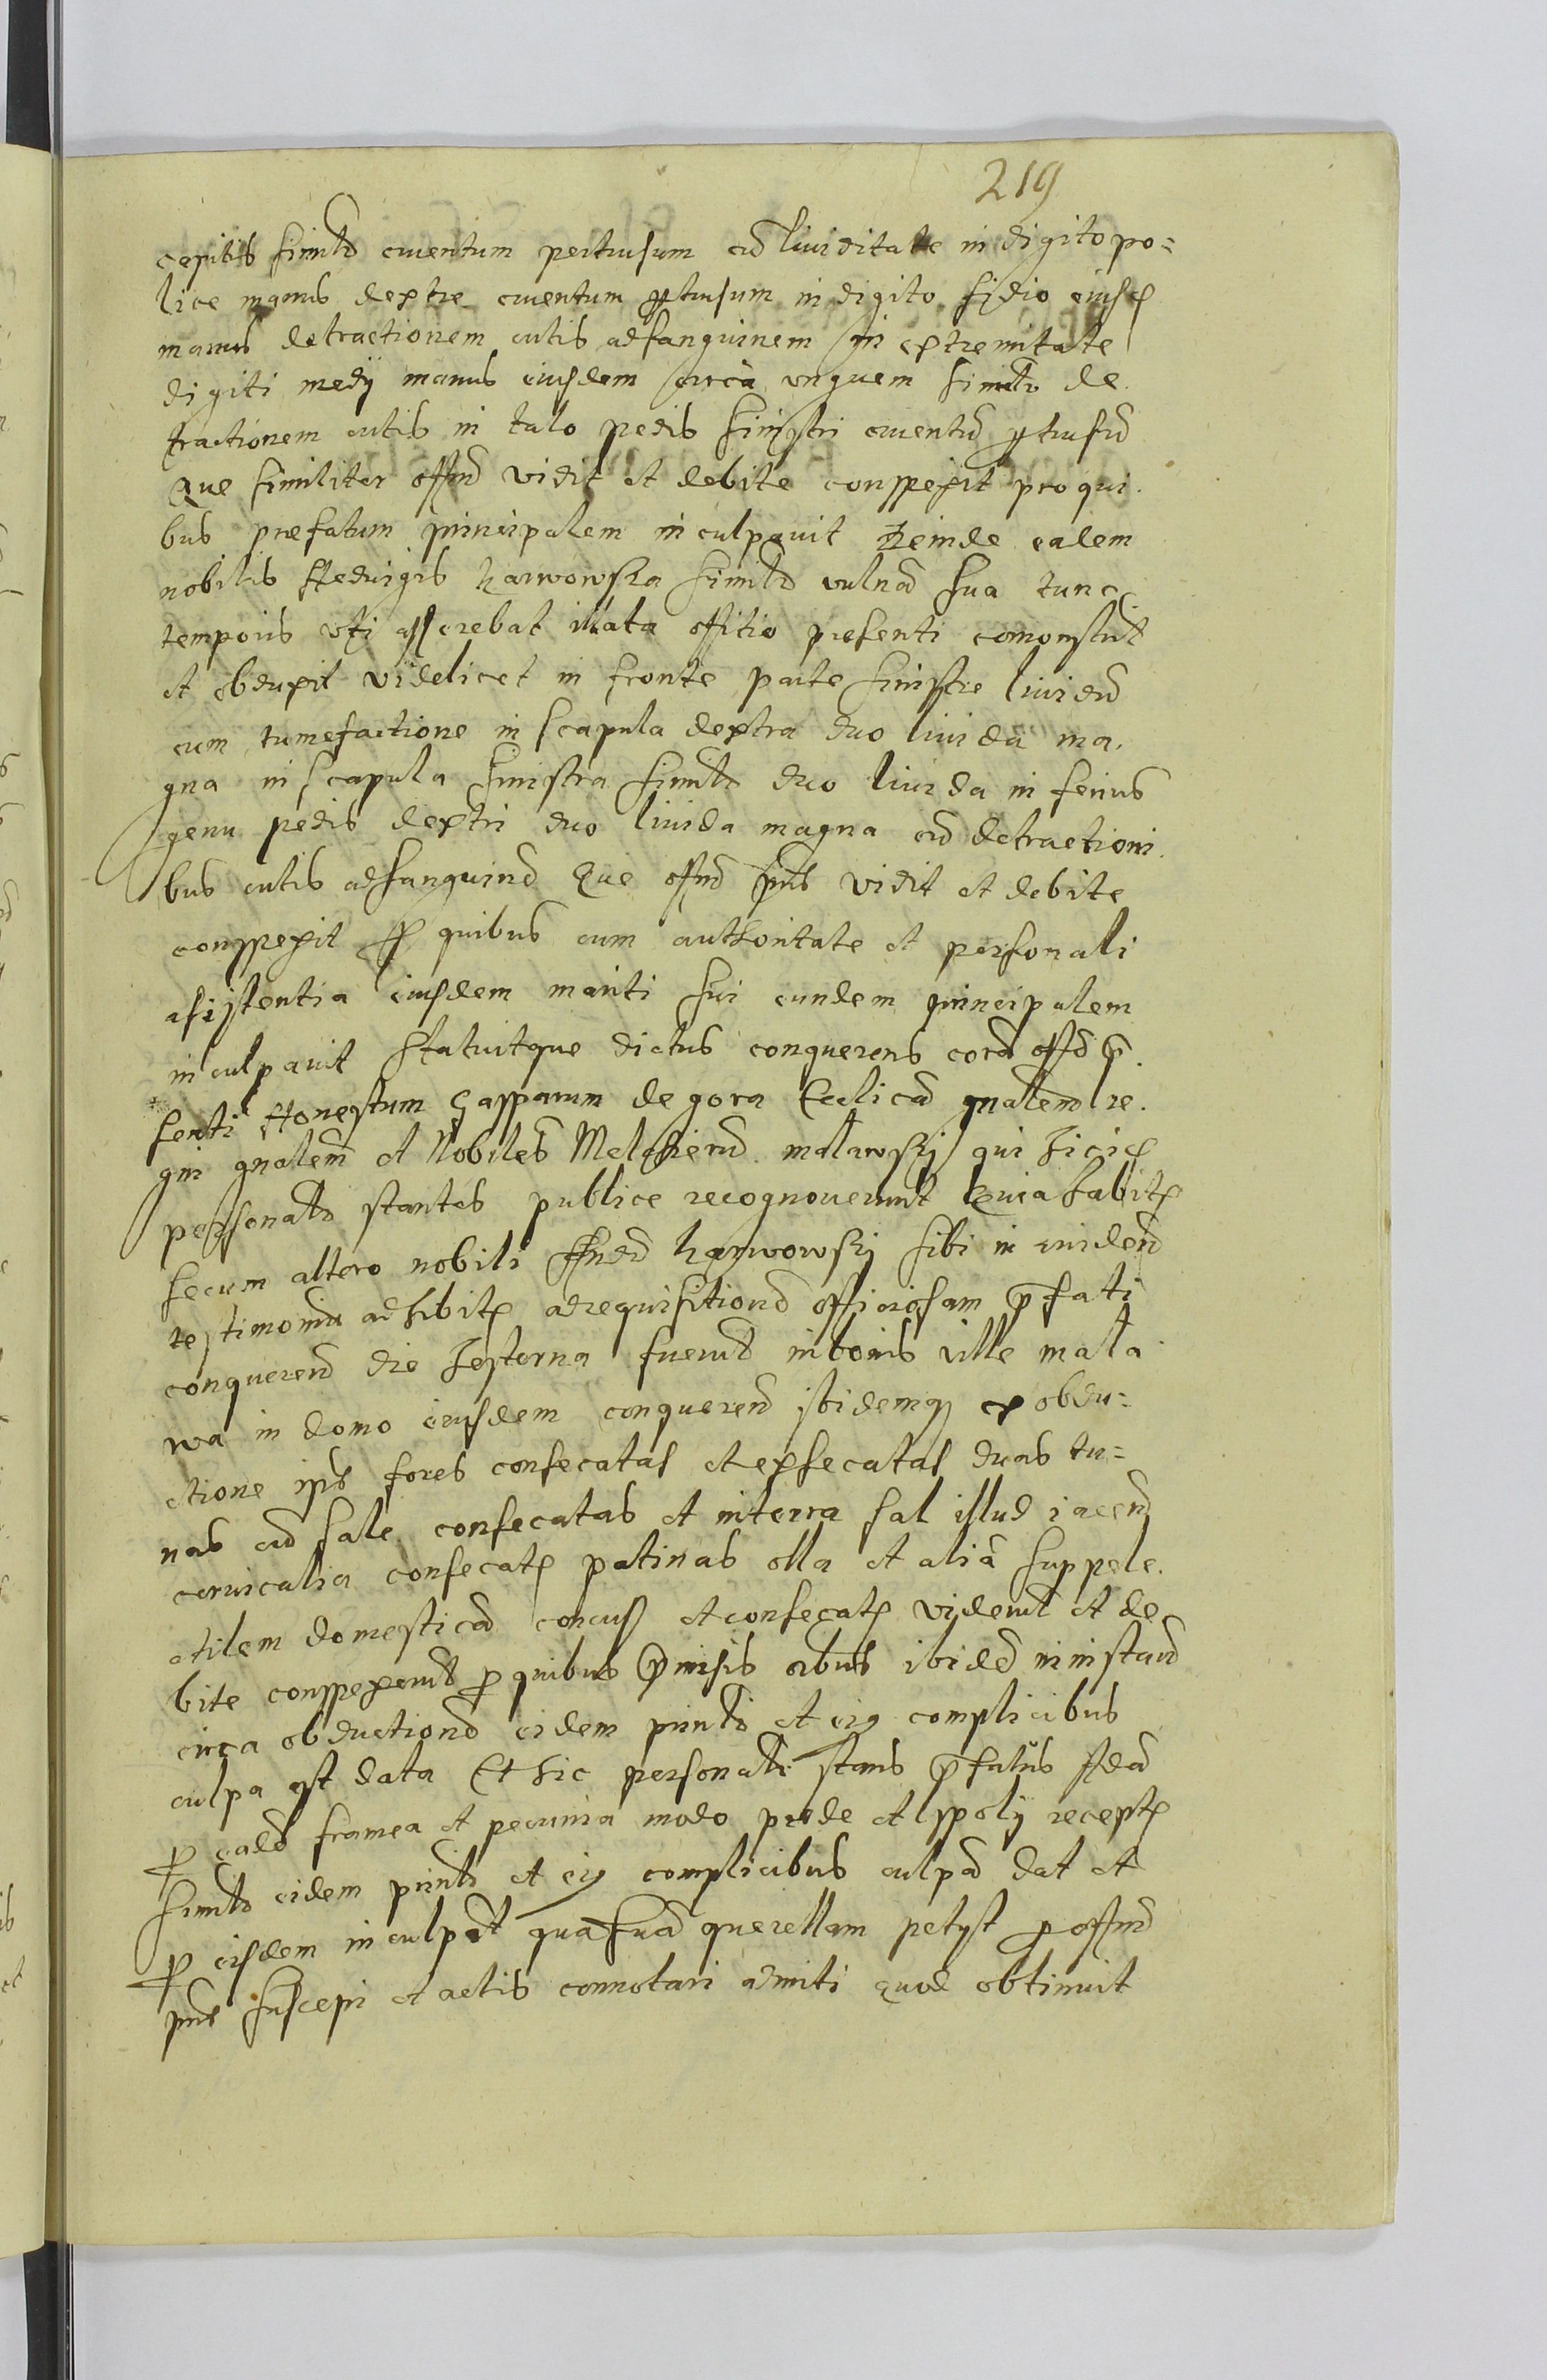 219
capitis similr cruentum pertusum cu liuiditate in digito po=
lice manus dextre cruentum ptusum in digito eiusd
manus detractionem cutis ad sanguinem in extremitate
digiti medÿ manus eiusdem circa vnguem similr de
tractionem cutis in talo pedis sinistri cruentu ptusu
Que similiter offm vidit et debite conspexit pro qui
bus prefatum principalem inculpauit Deinde eadem
nobilis Heduigis karwowska similr vulnera sua tunc
temporis vti asserebat illata offitio presenti comonstrt
et obduxit videlicet in fronte parte sinistre liuidu
cum tumefactione in scapula dextra duo liuida ma
gna in scapula sinistra similr duo liuida inferius
genu pedis dextri duo liuida magna cu detractioni
bus cutis ad sanguine Que offm pns vidit et debite
conspexit p quibus cum authoritate et personali
asistentia eiusdem mariti sui eundem principalem
inculpauit Statuitque dictus conquerens cora offo p
senti Honestum Gasparum de gora gnalem re
gni gnalem et Nobiles Melchieru matawskj qui hic
personalr stantes publice recognouerunt Quia habit
secum altero nobili karwowskj sibi in euidens
testimoniu adhibit ad requisitione officiosam pfati
conquerens die hesterna fuerut in bonis ville mata
wa in domo eiusdem conquerens ibidemq ex obdu=
ctione ipis fores consecatas et exsecatas duas tu=
nas cu sale consecatas et in terra sal illud iacens
ceruicalia consecat patinas olla et alia suppele
ctilem domestica concuss et consecat viderut et de
bite conspexerut p quibus pmisis oibus ibide in instanti
circa obductione eidem prinli et eiq complicibus
culpa est data Et hic personalr stans pfatus
p eade framea et pecunia modo prede et spolÿ recept
similr eidem prinli et eiq complicibus culpa dat et
p eisdem inculpat qua sua querellam petyt p offm
pns suscepi et actis connotari admiti quod obtinuit